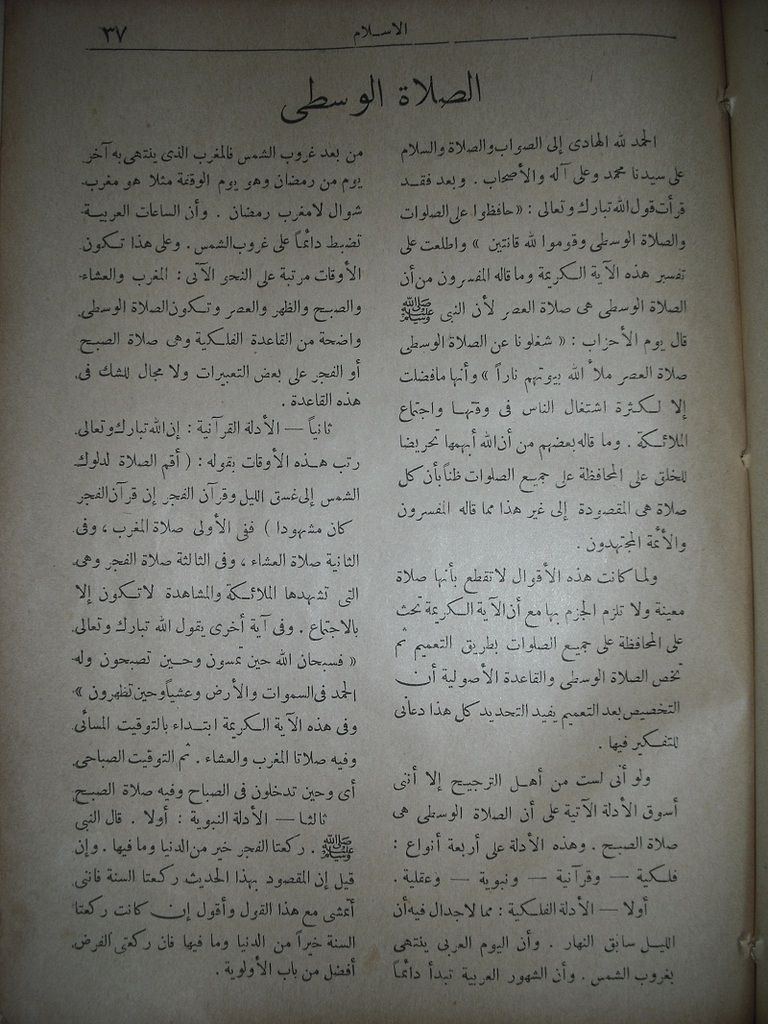 ٣٧
الاسلام
الصلاة الوسطى
الحمد لله الهادى إلى الصواب والصلاة والسلام
على سيدنا محمد وعلى آله والأصحاب . وبعد فقد
قرأت قول الله تبارك وتعالى : « حافظوا على الصلوات
والصلاة الوسطى وقوموا لله قانتين » واطلعت على
تفسير هذه الآية الكريمة وما قاله المفسرون من أن
الصلاة الوسطى هى صلاة العصر لأن النبى ﷺ
قال يوم الأحزاب : « شغلونا عن الصلاة الوسطى
صلاة العصر ملأ الله بيوتهم ناراً » وأنها ما فضلت
إلا لكثرة اشتغال الناس فى وقتها واجتماع
الملائكة . وما قاله بعضهم من أن الله أبهمها تحريضا
للخلق على المحافظة على جميع الصلوات ظناً بأن كل
صلاة هى المقصودة إلى غير هذا مما قاله المفسرون
والأئمة المجتهدون .
ولما كانت هذه الأقوال لا تقطع بأنها صلاة
معينة ولا تلزم الجزم بها مع أن الآية الكريمة تحث
على المحافظة على جميع الصلوات بطريق التعميم ثم
تخص الصلاة الوسطى والقاعدة الأصولية أن
التخصيص بعد التعميم يفيد التحديد كل هذا دعانى
للتفكير فيها .
ولو أنى لست من أهل الترجيح إلا أننى
أسوق الأدلة الآتية على أن الصلاة الوسطى هى
صلاة الصبح . وهذه الأدلة على أربعة أنواع :
فلكية — وقرآنية — ونبوية — وعقلية .
أولا — الأدلة الفلكية : مما لاجدال فيه أن
الليل سابق النهار . وأن اليوم العربى ينتهى
بغروب الشمس . وأن الشهور العربية تبدأ دائماً
من بعد غروب الشمس فالمغرب الذى ينتهى به آخر
يوم من رمضان وهو يوم الوقفة مثلا هو مغرب
شوال لامغرب رمضان . وأن الساعات العربية
تضبط دائماً على غروب الشمس . وعلى هذا تكون
الأوقات مرتبة على النحو الآتى : المغرب والعشاء
والصبح والظهر والعصر وتكون الصلاة الوسطى
واضحة من القاعدة الفلكية وهى صلاة الصبح
أو الفجر على بعض التعبيرات ولا مجال للشك فى
هذه القاعدة .
ثانياً — الأدلة القرآنية : إن الله تبارك وتعالى
رتب هذه الأوقات بقوله : ( أقم الصلاة لدلوك
الشمس إلى غسق الليل وقرآن الفجر إن قرآن الفجر
كان مشهودا ) ففى الأولى صلاة المغرب ، وفى
الثانية صلاة العشاء ، وفى الثالثة صلاة الفجر وهى
التى تشهدها الملائكة والمشاهدة لا تكون إلا
بالاجتماع . وفى آية أخرى يقول الله تبارك وتعالى
« فسبحان الله حين تمسون وحين تصبحون وله
الحمد فى السموات والأرض وعشياً وحين تظهرون »
وفى هذه الآية الكريمة ابتداء بالتوقيت المسائى
وفيه صلاتا المغرب والعشاء . ثم التوقيت الصباحى
أى وحين تدخلون فى الصباح وفيه صلاة الصبح
ثالثا — الأدلة النبوية : أولا . قال النبى
ﷺ . ركعتا الفجر خير من الدنيا وما فيها . وإن
قيل إن المقصود بهذا الحديث ركعتا السنة فانى
أتمشى مع هذا القول وأقول إن كانت ركعتا
السنة خيراً من الدنيا وما فيها فان ركعتى الفرض
أفضل من باب الأولوية .